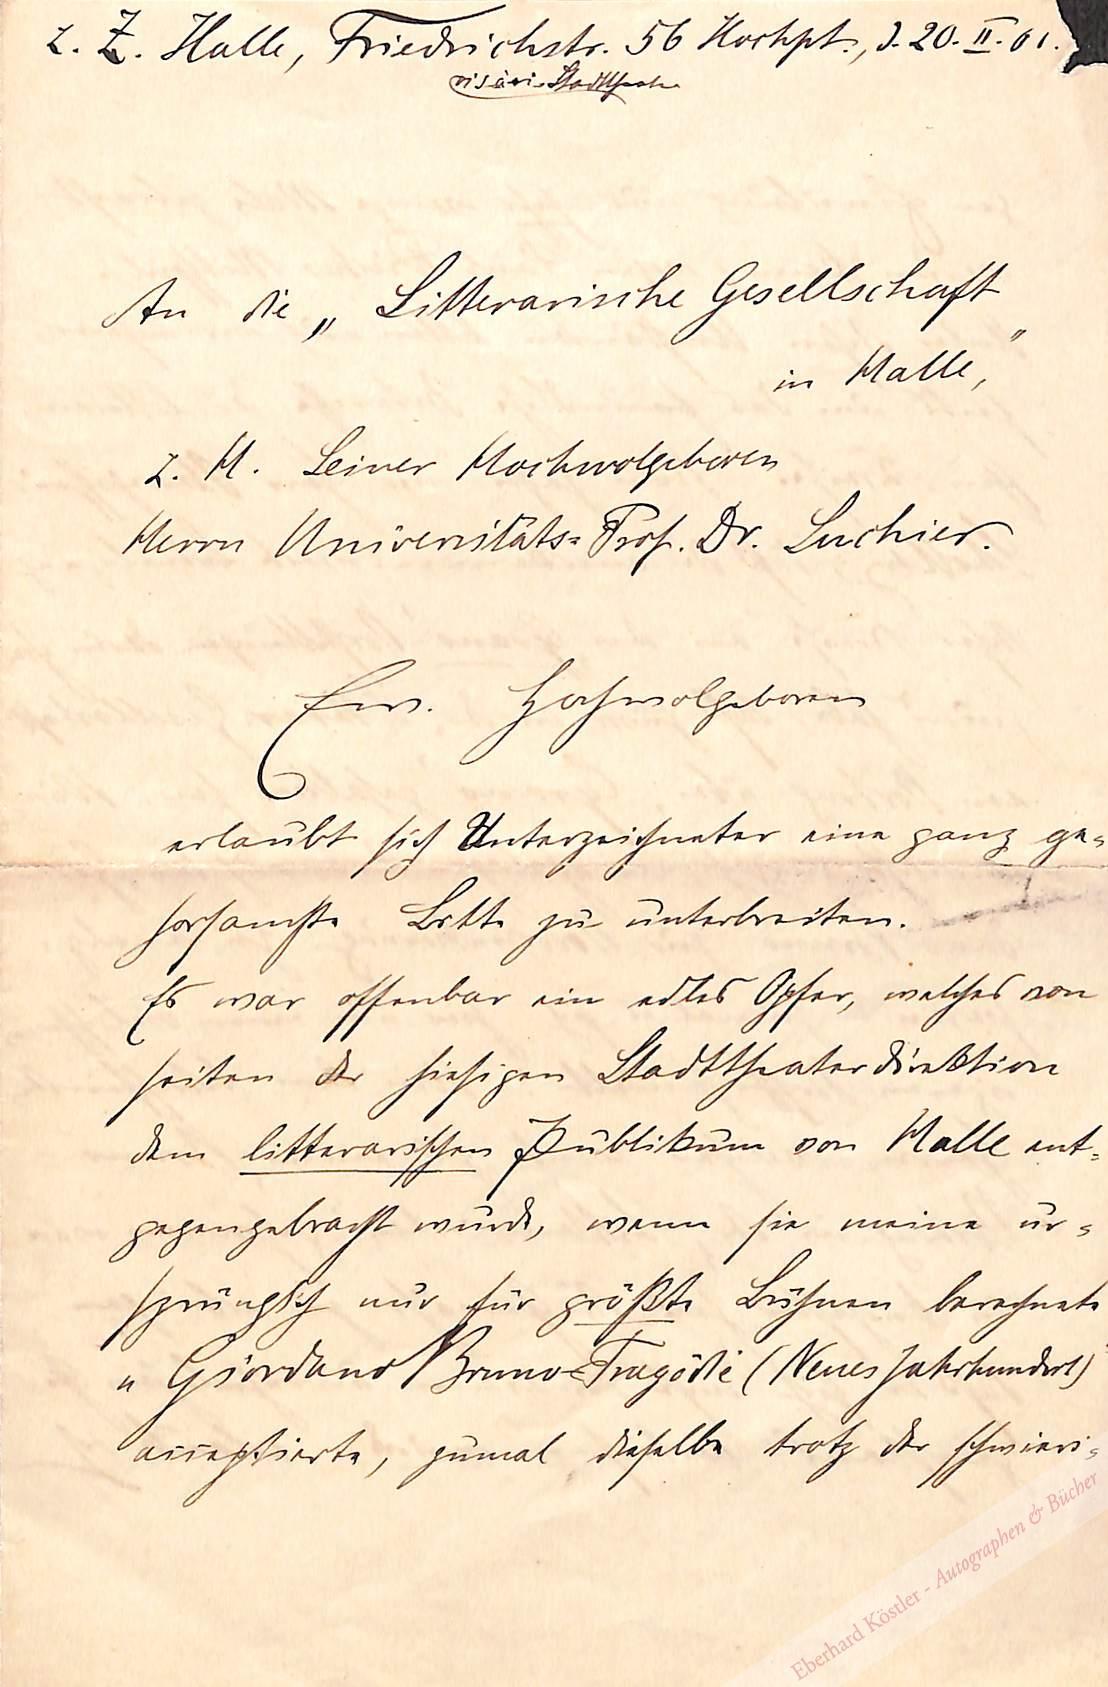 z. Z. Halle, Friedrichstr. 56 Hochpt., d. 20. II. 01.
vis à vis Stadttheater
An die „Litterarische Gesellschaft
in Halle,"
z. H. Seiner Hochwolgeboren
Herrn Universitäts-Prof. Dr. Suchier.
Ew. Hochwolgeboren
erlaubt sich Unterzeichneter eine ganz ge-
horsamste Bitte zu unterbreiten.
Es war offenbar ein edles Opfer, welches von
seiten der hiesigen Stadttheaterdirektion
dem litterarischen Publikum von Halle ent-
gegengebracht wurde, wenn sie meine ur-
sprünglich nur für größte Bühnen berechnete
„Giordano Bruno-Tragödie (Neues Jahrhundert)"
acceptierte, zumal dieselbe trotz der schwieri-
Eberhard Köstler - Autographen & Bücher